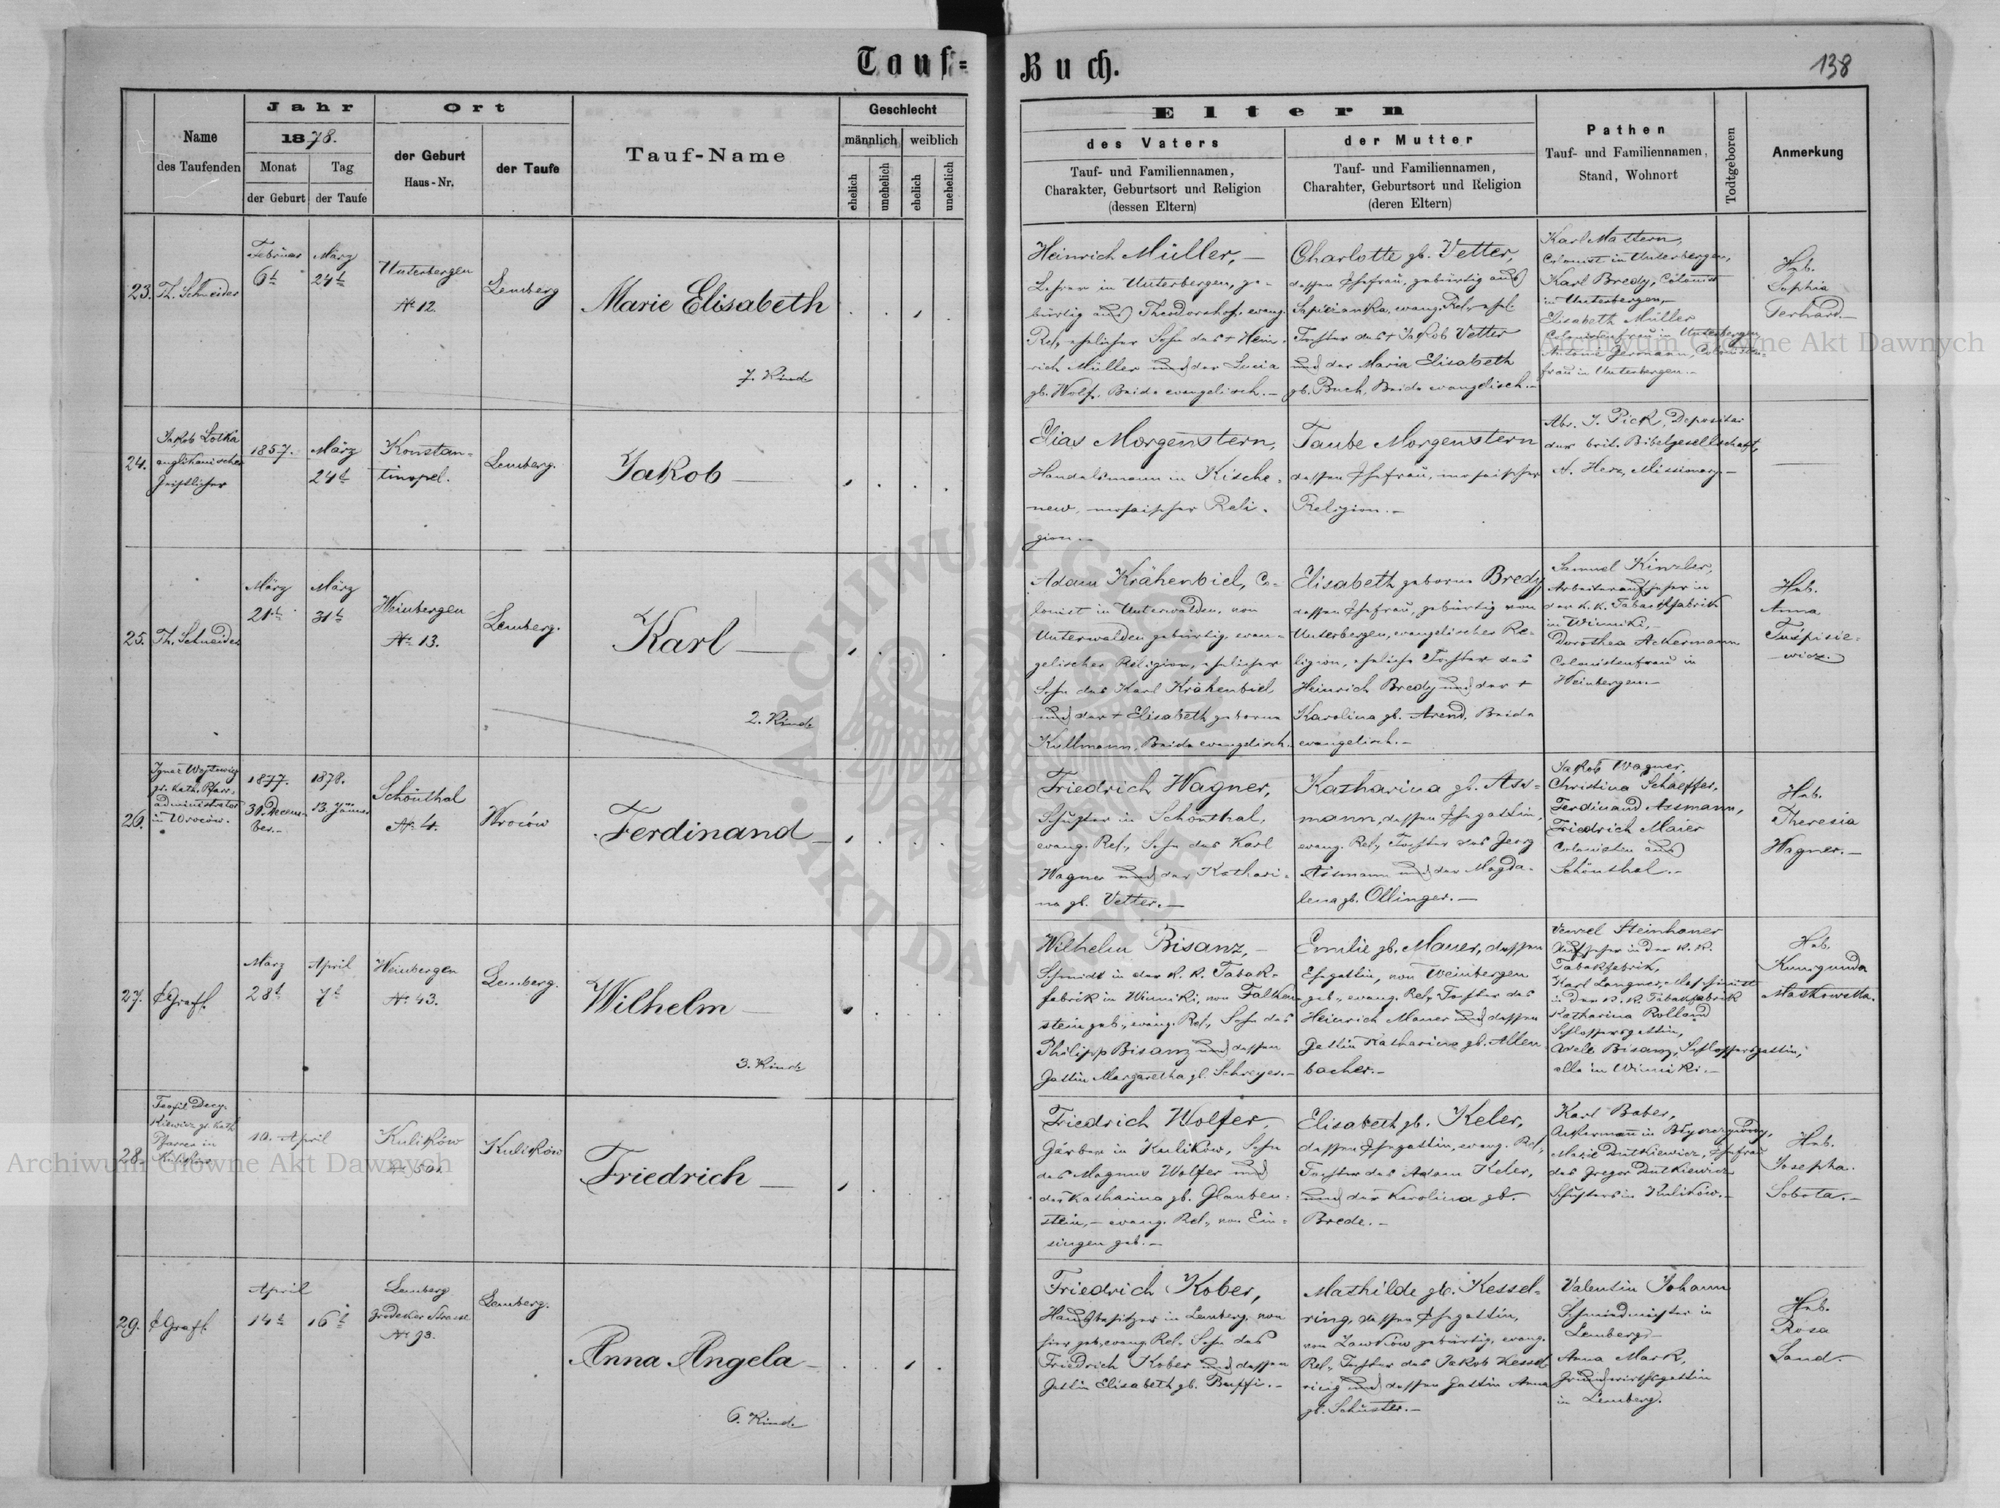 Tauf=
Buch.
138
Name
des Taufenden
Jahr
1878.
Monat
der Geburt
Tag
der Taufe
Ort
der Geburt
Haus-Nr.
der Taufe
Tauf-Name
Geschlecht
männlich
weiblich
ehelich
unehelich
ehelich
unehelich
Eltern
des Vaters
Tauf- und Familiennamen,
Charakter, Geburtsort und Religion
(dessen Eltern)
der Mutter
Tauf- und Familiennamen,
Charahter, Geburtsort und Religion
(deren Eltern)
Pathen
Tauf- und Familiennamen,
Stand, Wohnort
Todtgeboren
Anmerkung
23.
Th. Schneider
Februar
6t
März
24t
Unterbergen
Nr 12.
Lemberg
Marie Elisabeth
7. Kind.
Heinrich Müller, –
Lehrer in Unterbergen, ge-
bürtig aus Theodorshof, evang.
Rel., ehelicher Sohn des + Hein-
rich Müller und der Lucia
gb. Wolf. Beide evangelisch. –
Charlotte gb. Vetter,
dessen Ehefrau, gebürtig aus
Sapiezanka, evang. Rel., ehel.
Tochter des + Jakob Vetter
und der Maria Elisabeth
gb. Buch, Beide evangelisch. –
Karl Mattern,
Colonist in Unterbergen,
Karl Bredy, Colonist
in Unterbergen, –
Elisabeth Müller
Colonistenfrau in Unterbergen
Antonie Germann, Colonisten-
frau in Unterbergen. –
Heb.
Sophia
Gerhard. –
24.
Jakob Lotka
anglikanischer
Geistlicher
1857.
März
24t
Konstan-
tinopel.
Lemberg.
Jakob –
Elias Morgenstern,
Handelsmann in Kische-
new, mosaischer Reli-
gion. –
Taube Morgenstern
dessen Ehefrau, mosaischer
Religion. –
Abr. J. Pick, Depositar
der brit. Bibelgesellschaft,
A. Herz, Missionary –
25.
Th. Schneider
März
21t
März
31t
Weinbergen
Nr 13.
Lemberg.
Karl –
2. Kind.
Adam Krähenbiel, Co-
lonist in Unterwalden, von
Unterwalden gebürtig, evan-
gelischer Religion, ehelicher
Sohn des Karl Krähenbiel
und der + Elisabeth geborne
Kullmann, Beide evangelisch. –
Elisabeth geborne Bredy,
dessen Ehefrau, gebürtig von
Unterbergen, evangelischer Re-
ligion, eheliche Tochter des
Heinrich Bredy und der +
Karolina gb. Arend. Beide
evangelisch. –
Samuel Kinzler,
Arbeiteraufseher in
der k.k. Tabakfabrik
in Winniki, –
Dorothea Ackermann
Colonistenfrau in
Weinbergen. –
Heb.
Anna
26.
gr. kath. Pfarr-
administrator
in Wrocow.
1877.
30. Decem-
ber. –
1878.
13. Jänner
Schönthal
Nr 4.
Wroców
Ferdinand –
Friedrich Wagner,
Schuster in Schönthal,
evang. Rel., Sohn des Karl
Wagner und der Kathari-
na gb. Vetter. –
Katharina gb. Ass-
mann, dessen Ehegattin,
evang. Rel., Tochter des Jerg
Assmann und der Magda-
lena gb. Ollinger. –
Jakob Wagner,
Christina Schaeffer,
Ferdinand Assmann,
Friedrich Maier
Colonisten aus
Schönthal. –
Heb.
Theresia
Wagner. –
27.
E Graf.
März
28t
April
7t
Weinbergen
Nr 43.
Lemberg.
Wilhelm –
3. Kind.
Wilhelm Bisanz, –
Schmidt in der k. k. Tabak-
fabrik in Winniki, von Falken-
stein geb., evang. Rel., Sohn des
Philipp Bisanz und dessen
Gattin Margaretha gb. Schreyer. –
Emilie gb. Mauer, dessen
Ehegattin, von Weinbergen
geb., evang. Rel., Tochter des
Heinrich Mauer und dessen
Gattin Katharina gb. Allen-
bacher. –
Venzel Steinhauer
Aufseher in der k. k.
Tabakfabrik,
in der k. k. Tabakfabrik
Katharina Rolland
Schlossersgattin,
Adele Bisanz, Schlossersgattin,
alle in Winniki. –
Heb.
Kunigunda
28.
Pfarrer in
Kulikow.
10. April
Kulików
Nr 501.
Kulików
Friedrich –
Friedrich Wolfer,
Gärber in Kulików, Sohn
des Magnus Wolfer und
der Katharina gb. Glauben-
stein, – evang. Rel., von Ein-
singen geb. –
Elisabeth gb. Keler,
dessen Ehegattin, evang. Rel.,
Tochter des Adam Keler,
und der Karolina gb.
Brede. –
Karl Baber,
Marie Dutkiewicz, Ehefrau
des Gregor Dutkiewicz
Schusters in Kulików. –
Heb.
Josepha
Sobota. –
29.
E Graf.
April
14t
16t
Lemberg
Grodeker Strasse
Nr 93.
Lemberg.
Anna Angela –
6. Kind.
Friedrich Kober,
Hausbesitzer in Lemberg, von
hier geb., evang. Rel., Sohn des
Friedrich Kober und dessen
Gattin Elisabeth gb.
Mathilde gb. Kessel-
ring, dessen Ehegattin,
gebürtig, evang.
Rel., Tochter des Jakob Kessel
ring und dessen Gattin Anna
gb. Schuster. –
Valentin Johann
Schmiedmeister in
Lemberg –
Anna Mark,
Grundwirthsgattin
in Lemberg.
Heb.
Rosa
Sand. –
Archiwum Główne Akt Dawnych
Archiwum Główne Akt Dawnych
ARCHIWUM GŁÓWNE AKT DAWNYCH